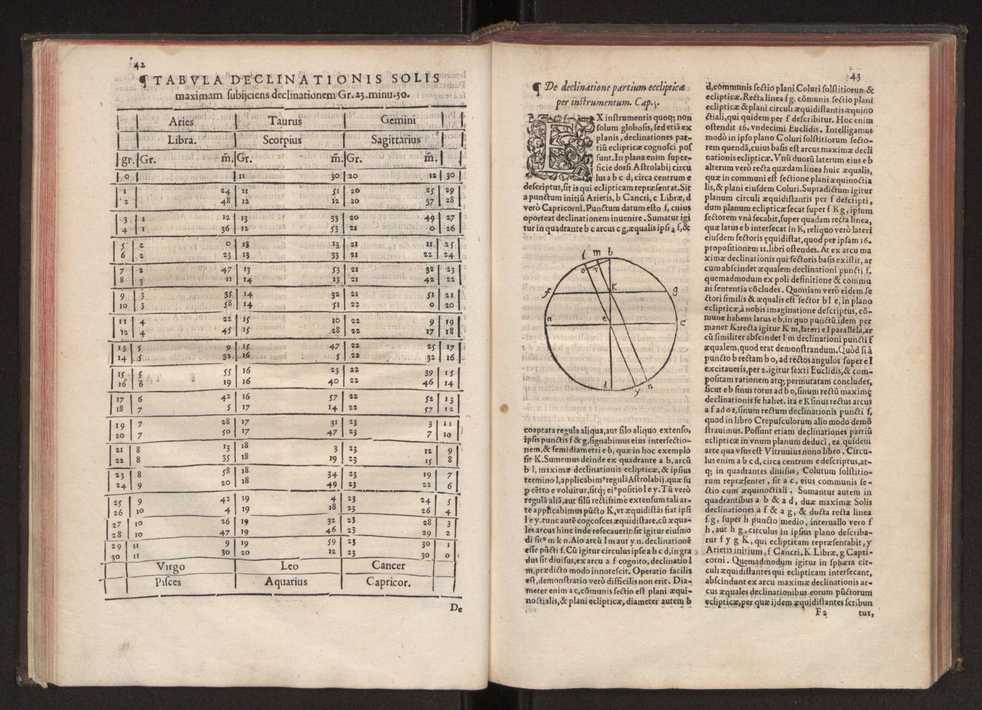 42
¶ TABVLA DECLINATIONIS SOLIS
maximam subijciens declinationem Gr. 23. minu. 30.
Aries Taurus Gemini
Libra. Scorpius Sagittarius
gr. Gr. m̃. Gr. m̃. Gr. m̃.
0 11 30 20 12 30
1 24 11 51 20 25 29
2 48 12 12 20 37 28
3 1 12 12 33 20 49 27
4 1 36 12 53 21 0 26
5 2 0 13 13 21 11 25
6 2 23 13 33 21 22 24
7 2 47 13 53 21 32 23
8 3 11 14 13 21 42 22
9 3 35 14 32 21 51 21
10 3 58 14 51 22 0 20
11 4 22 15 10 22 9 19
12 4 45 15 28 22 17 18
13 5 9 15 47 22 25 17
14 5 32 16 5 22 32 16
15 5 55 16 23 22 39 15
16 6 19 16 40 22 46 14
17 6 42 16 57 22 52 13
18 7 5 17 14 22 57 12
19 7 28 17 31 23 3 11
20 7 50 17 47 23 7 10
21 8 13 18 3 23 12 9
22 8 35 18 19 23 15 8
23 8 58 18 34 23 19 7
24 9 20 18 49 23 22 6
25 9 42 19 4 23 24 5
26 10 4 19 18 23 26 4
27 10 26 19 32 23 28 3
28 10 47 19 46 23 29 2
29 11 9 19 59 23 30 1
30 11 30 20 12 23 30 0
Virgo Leo Cancer
Pisces Aquarius Capricor.
De
43
¶ De declinatione partium eclipticæ
per instrumentum. Cap. 3.
EX instrumentis quoq; non
solum globosis, sed etiã ex
planis, declinationes par-
tiũ eclipticæ cognosci pos
sunt. In plana enim super-
ficie dorsi Astrolabij circu
lus a b c d, circa centrum e
descriptus, sit is qui eclipticam repræsentat. Sit
a punctum initiũ Arietis, b Cancri, c Libræ, d
verò Capricorni. Punctum datum esto f, cuius
oporteat declinationem inuenire. Sumatur igi
tur in quadrante b c arcus c g, æqualis ipsi a f, &
l m b
o
f K g
a e c
d n
y
coaptata regula aliqua, aut filo aliquo extenso,
ipsis punctis f & g, signabimus eius intersectio-
nem, & semidiametri e b, quæ in hoc exemplo
sit K. Sumemus deinde ex quadrante a b, arcũ
b l, maximæ declinationis eclipticæ, & ipsius
termino l, applicabimº regulã Astrolabij, quæ su
p cẽtro e voluitur, sitq; eiº positio l e y. Tũ verò
regulã aliã, aut filũ rectissimè extensum tali ar-
te applicabimus pũcto K, vt æquidistãs fiat ipsi
l e y. tunc autẽ cognosces æquidistare, cũ æqua-
les arcus hinc inde resecauerit: sit igitur eiusmo
di sitº m k n. Aio arcũ l m aut y n, declinationẽ
esse pũcti f. Cũ igitur circulus ipse a b c d, in gra
dus sit diuisus, ex arcu a f cognito, declinatio l
m, prædicto modo innotescit. Operatio facilis
est, demonstratio verò difficilis non erit. Dia-
meter enim a c, cõmunis sectio est plani æqui-
noctialis, & plani eclipticæ, diameter autem b
d, cõmunis sectio plani Coluri solstitiorum &
eclipticæ. Recta linea f g, cõmunis sectio plani
eclipticæ & plani circuli æquidistantis æquino
ctiali, qui quidem per f describitur. Hoc enim
ostendit 16. vndecimi Euclidis. Intelligamus
modò in ipso plano Coluri solstitiorum secto-
rem quendã, cuius basis est arcus maximæ decli
nationis eclipticæ. Vnũ duorũ laterum eius e b
alterum verò recta quædam linea huic æqualis,
quæ in communi est sectione plani æquinoctia
lis, & plani eiusdem Coluri. Supradictum igitur
planum circuli æquidistantis per f descripti,
dum planum eclipticæ secat super f K g, ipsum
sectorem vnà secabit, super quadam recta linea,
quæ latus e b intersecat in K, reliquo verò lateri
eiusdem sectoris equidistat, quod per ipsam 16.
propositionem 11. libri ostendes. At ex arcu ma
ximæ declinationis qui sectoris basis existit, ar
cum abscindet æqualem declinationi puncti f,
quemadmodum ex poli definitione & commu
ni sententia cõcludes. Quoniam verò eidem se
ctori similis & æqualis est sector b l e, in plano
eclipticæ, à nobis imaginatione descriptus, cõ-
mune habens latus e b, in quo punctũ idem per
manet K: recta igitur K m, lateri e l parallela, ar
cũ similiter abscindet l m declinationi puncti f
æqualem, quod erat demonstrandum. Quòd si à
puncto b rectam b o, ad rectos angulos super e l
excitaueris, per 2. igitur sexti Euclidis, & com-
positam rationem atq; permutatam concludes,
sicut e b sinus totus ad b o, sinum rectũ maximę
declinationis se habet. ita e K sinus rectus arcus
a f ad o r, sinum rectum declinationis puncti f,
quod in libro Crepusculorum alio modo demõ
strauimus. Possunt etiam declinationes partiũ
eclipticæ in vnum planum deduci, ea quidem
arte qua vsus est Vitruuius nono libro. Circu-
lus enim a b c d, circa centrum e descriptus, at-
q; in quadrantes diuisus, Colurum solstitio-
rum repræsentet, sit a c, eius communis se-
ctio cum æquinoctiali. Sumantur autem in
quadrantibus a b & a d, duæ maximæ Solis
declinationes a f & a g, & ducta recta linea
f g, super h puncto medio, interuallo vero f
h, aut h g, circulus in ipsius plano describa-
tur f y g K, qui eclipticam repræsentabit, y
Arietis initium, f Cancri, K Libræ, g Capri-
corni. Quemadmodum igitur in sphæra cir-
culi æquidistantes qui eclipticam intersecant,
abscindunt ex arcu maximæ declinationis ar-
cus æquales declinationibus eorum pũctorum
eclipticæ, per quæ ijdem æquidistantes scribun
F 2 tur,